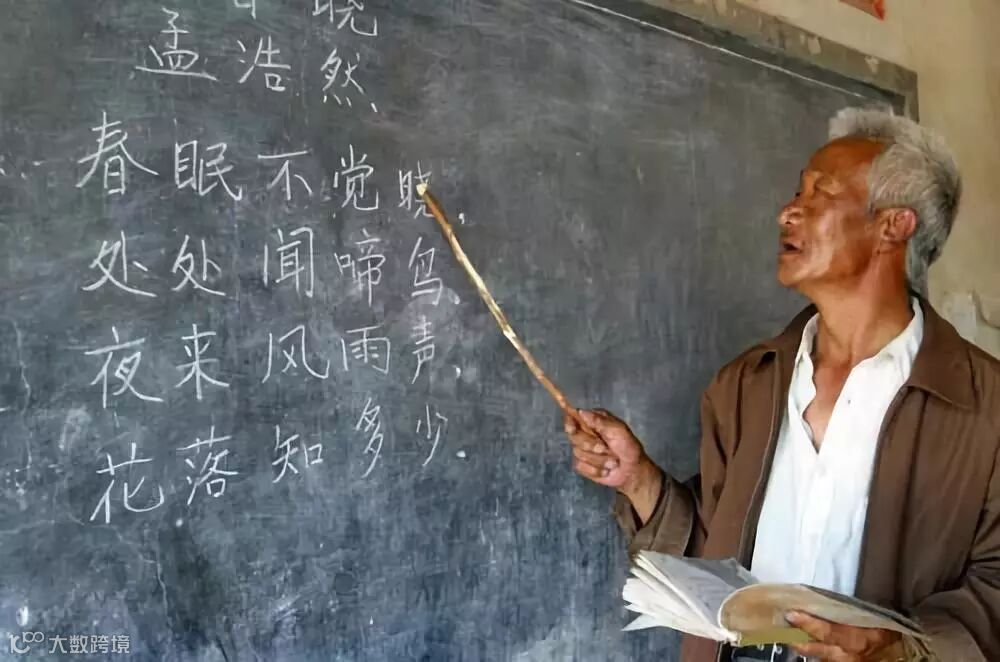 晓
孟浩然
春眠不觉晓,
处处闻啼鸟、
夜来风雨声、
花落知多少.
大数跨境